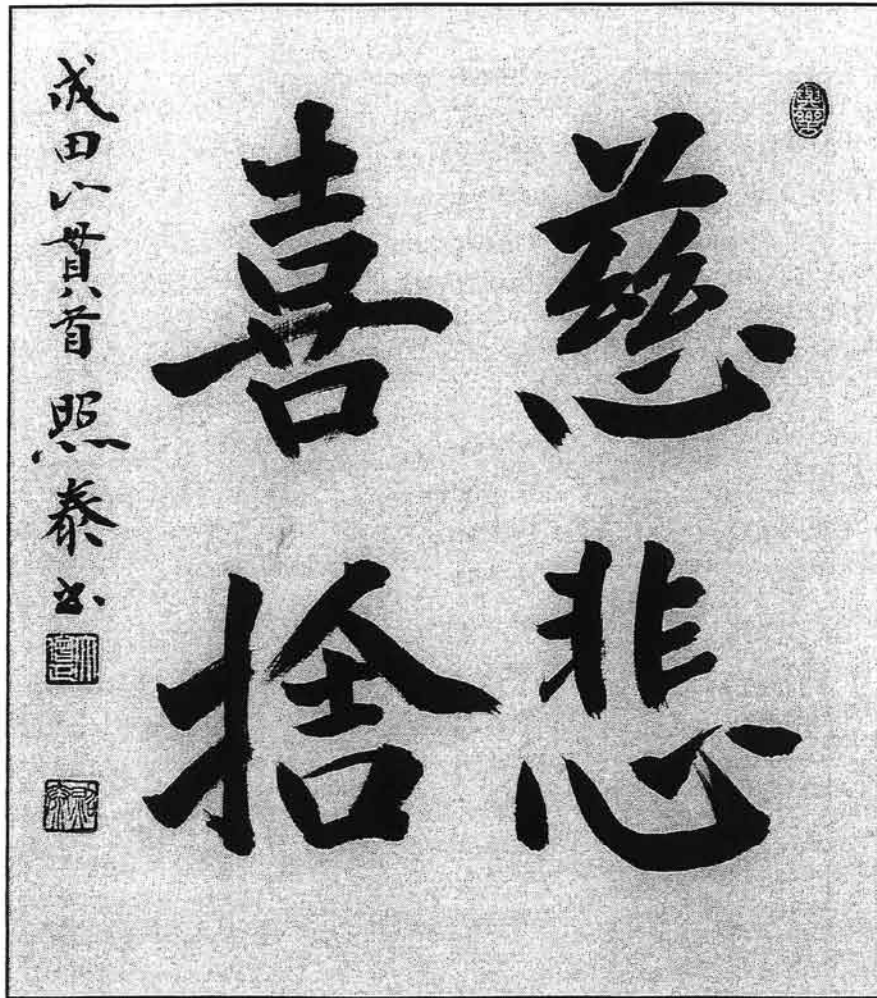 慈悲
喜捨
成田山貫首 照泰書